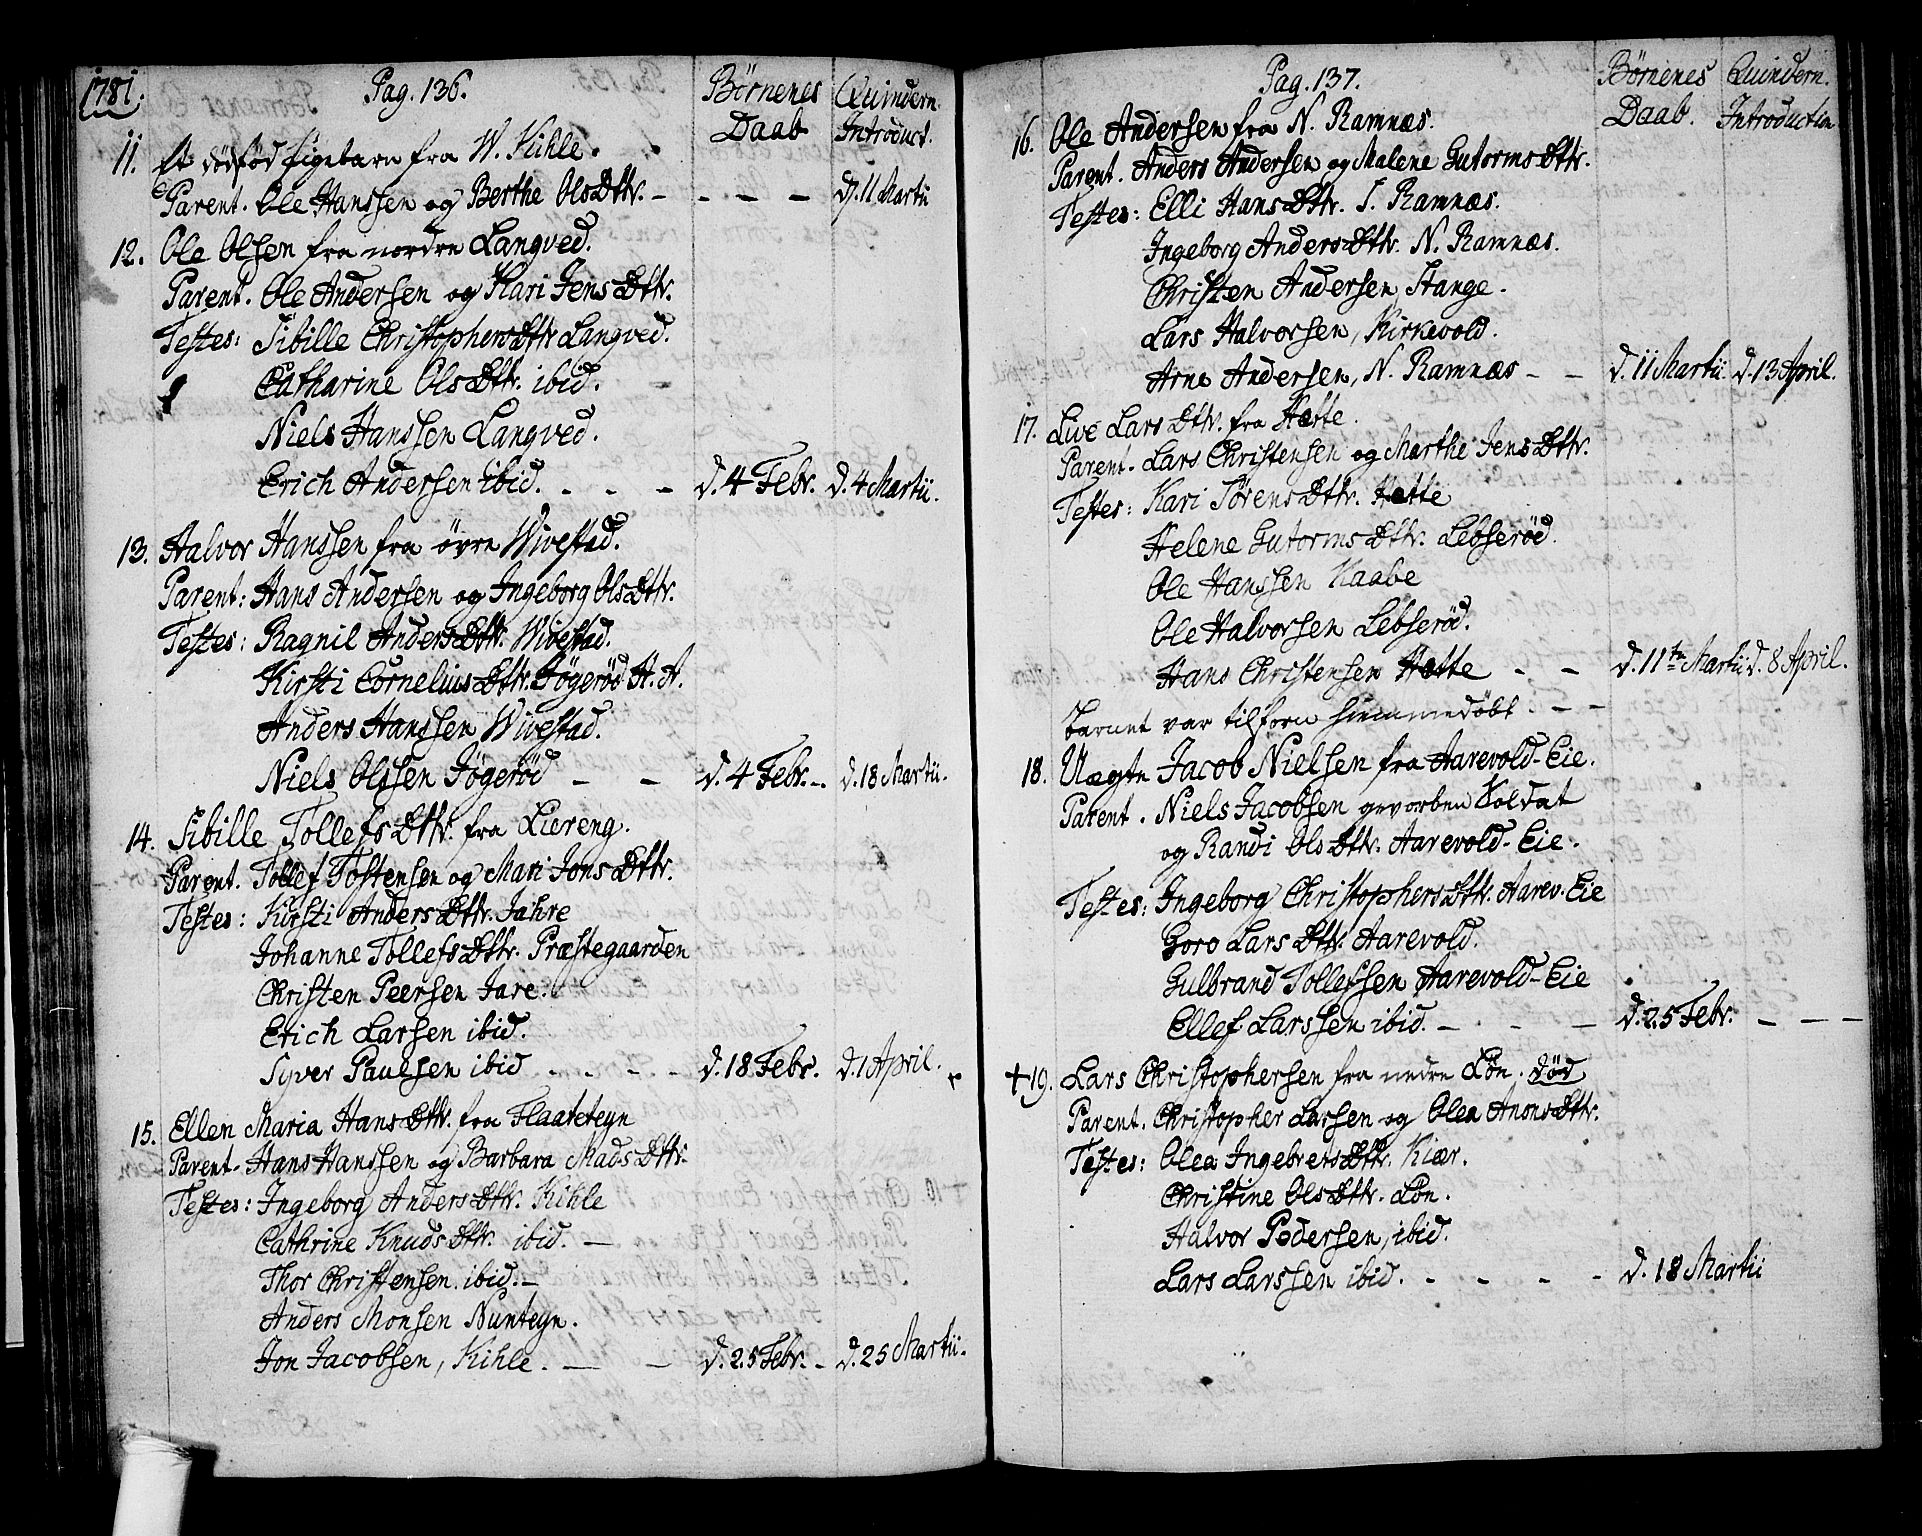 1781.
Pag. 136.
Börnenes Daab
Quindern. Introduct.
11. Et dödfød Pigebarn fra W. Kihle.
Parent. Ole Hanssen og Berthe OlsDttr. - - - - d. 11 Martii
12. Ole Olsen fra nordre Langved.
Parent. Ole Andersen og Kari JensDttr.
Testes: Sibille ChristophersDttr Langved.
Catharine OlsDttr. ibid.
Niels Hanssen Langved.
Erich Andersen ibid. - - - d. 4 Febr. d. 4 Martii.
13. Halvor Hanssen fra øvre Wivestad.
Parent: Hans Andersen og Ingeborg OlsDttr.
Testes: Ragnil AndersDttr. Wivestad.
Kirsti CorneliusDttr. Gögeröd H. A.
Anders Hanssen Wivestad.
Niels Olssen Gögeröd - - d. 4 Febr. -. d. 18 Martii.
14. Sibille TollefsDttr. fra Liereng.
Parent. Tollef Tostensen og Mari JonsDttr.
Testes: Kirsti AndersDttr. Jahre
Johanne TollefsDttr. Præstegaarden
Christen Peersen Jare.
Erich Larsen ibid.
Syver Paulsen ibid - - - - d. 18 Febr. d. 1 April.
15. Ellen Maria HansDttr. fra Flaatetegn
Parent. Hans Hanssen og Barbara MadsDttr.
Testes: Ingeborg AndersDttr. Kihle
Cathrine KnudsDttr. ibid. -
Thor Christensen ibid. -
Anders Monsen Nuntegn.
Jon Jacobsen, Kihle. - - d. 25 Febr. - d. 25 Martii.
Pag. 137.
Börnenes Daab.
Quindern. Introduction
16. Ole Andersen fra N. Ramnæs.
Parent. Anders Andersen og Malene GutormsDttr.
Testes: Elli HansDttr. S. Ramnæs.
Ingeborg AndersDttr. N. Ramnæs.
Christen Andersen Stange.
Lars Halvorsen, Kirkevold.
Arne Andersen, N. Ramnæs - - d. 11 Martii d. 13 April.
17. Live LarsDttr. fra Hætte.
Parent. Lars Christensen og Marthe JensDttr.
Testes: Kari SörensDttr. Hætte
Helene GutormsDttr. Lebseröd.
Ole Hanssen Kaabe
Ole Halvorsen Lebseröd.
Hans Christensen Hætte - - d. 11te Martii d. 8 April.
Barnet var tilforn hiemmedöbt. - -
18. Uægte Jacob Nielsen fra Aarevold-Eie.
Parent. Niels Jacobsen gevorben Soldat
og Randi OlsDttr. Aarevold-Eie.
Testes: Ingeborg ChristophersDttr. Aarev. Eie
Goro LarsDttr. Aarevold.
Gulbrand Tollefsen Aarevold-Eie
Ellef Larssen ibid. - - - d. 25 Febr. - - -
+ 19. Lars Christophersen fra nedre Lön. död
Parent. Christopher Larssen og Olea AnonsDttr.
Testes: Olea IngebretsDttr. Kiær.
Christine OlsDttr. Lön.
Halvor Pedersen, ibid.
Lars Larssen ibid. - - - - d. 18 Martii